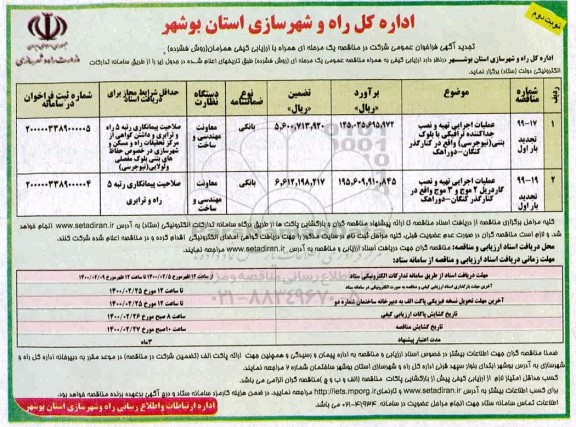 نوبت دوم
اداره کل راه و شهرسازی استان بوشهر
وزارت راه و شهرسازی
تجدید آگهی فراخوان عمومی شرکت در مناقصه یک مرحله ای همراه با ارزیابی کیفی همزمان(روش فشرده)
اداره کل راه و شهرسازی استان بوشهر درنظر دارد ارزیابی کیفی به همراه مناقصه عمومی یک مرحله ای (روش فشرده) طبق تاریخهای اعلام شده در جدول زیر را از طریق سامانه تدارکات
الکترونیکی دولت (ستاد) برگزار نماید.
ردیف
شماره مناقصه
موضوع
برآورد «ریال»
تضمین «ریال»
نوع ضمانتنامه
دستگاه نظارت
حداقل شرایط مجاز برای دریافت اسناد
شماره ثبت فراخوان در سامانه
۱
۹۹-۱۷ تجدید بار اول
عملیات اجرایی تهیه و نصب جداکننده ترافیکی با بلوک بتنی(نیوجرسی) واقع در کنارگذر کنگان-دوراهک
۱۴۵,۰۳۵,۶۹۵,۹۷۲
۵,۶۰۰,۷۱۳,۹۲۰
بانکی
معاونت مهندسی و ساخت
صلاحیت پیمانکاری رتبه ۵ راه و ترابری و داشتن گواهی از مرکز تحقیقات راه و مسکن و شهرسازی در خصوص حفاظ های بتنی بلوک مفصلی ولولایی(نیوجرسی)
۲۰۰۰۰۰۳۳۸۹۰۰۰۰۰۵
۲
۹۹-۱۹ تجدید بار اول
عملیات اجرایی تهیه و نصب گاردریل ۲ موج و ۳ موج واقع در کنارگذر کنگان-دوراهک
۱۹۵,۶۰۹,۹۱۰,۸۴۵
۶,۶۱۲,۱۹۸,۲۱۷
بانکی
معاونت مهندسی و ساخت
صلاحیت پیمانکاری رتبه ۵ راه و ترابری
۲۰۰۰۰۰۳۳۸۹۰۰۰۰۰۴
کلیه مراحل برگزاری مناقصه از دریافت اسناد مناقصه تا ارائه پیشنهاد مناقصه گران و بازگشایی پاکت ها از طریق درگاه سامانه تدارکات الکترونیکی (ستاد) به آدرس www.setadiran.ir انجام خواهد
شد و لازم است مناقصه گران در صورت عدم عضویت قبلی، کلیه مراحل ثبت نام در سایت مذکور را جهت دریافت گواهی امضای الکترونیکی اقدام کرده و در مناقصه اعلام شده شرکت کنند.
محل دریافت اسناد ارزیابی و مناقصه: مناقصه گران جهت دریافت اسناد ارزیابی و مناقصه به آدرس www.setadiran.ir مراجعه نمایند.
مهلت زمانی دریافت اسناد ارزیابی و مناقصه از سامانه ستاد:
مهلت دریافت اسناد از طریق سامانه تدارکات الکترونیکی ستاد
آخرین مهلت بارگذاری اسناد ارزیابی کیفی و مناقصه به صورت الکترونیکی در سامانه ستاد
تا ساعت ۱۲ مورخ ۱۴۰۰/۰۲/۲۵
آخرین مهلت تحویل نسخه فیزیکی پاکت الف به دبیرخانه ساختمان شماره دو
تا ساعت ۱۲ مورخ ۱۴۰۰/۰۲/۲۵
تاریخ گشایش پاکات ارزیابی کیفی
ساعت ۸ صبح مورخ ۱۴۰۰/۰۲/۲۶
تاریخ گشایش مناقصه
ساعت ۱۰صبح مورخ ۱۴۰۰/۰۲/۲۷
مدت اعتبار پیشنهاد
۳ماه
ضمنا مناقصه گران جهت اطلاعات بیشتر در خصوص اسناد ارزیابی و مناقصه به اداره پیمان و رسیدگی و همچنین مهلت ارائه پاکت الف (تضمین شرکت در مناقصه) در موعد مقرر به دبیرخانه اداره کل راه و
شهرسازی به آدرس بوشهر ابتدای بلوار سپهبد قرنی اداره کل راه و شهرسازی استان بوشهر ساختمان شماره ۲ مراجعه نمایند.
کسب حداقل امتیاز لازم از ارزیابی کیفی پیش از بازگشایی پاکات مناقصه (الف و ب و ج )مناقصه گران الزامی می باشد.
برای کسب اطلاعات بیشتر به آدرس www.setadiran.ir و تارنمای http://iets.mporg.ir مراجعه نمایند. در ضمن هزینه کارمزد سامانه ستاد و درج آگهی برعهده برنده مناقصه خواهد بود.
اطلاعات تماس سامانه ستاد جهت انجام مراحل عضویت در سامانه: ۴۱۹۳۴-۰۲۱ می باشد.
اداره ارتباطات واطلاع رسانی راه وشهرسازی استان بوشهر
۰۲۱-۸۸۳۴۹۶۷۰